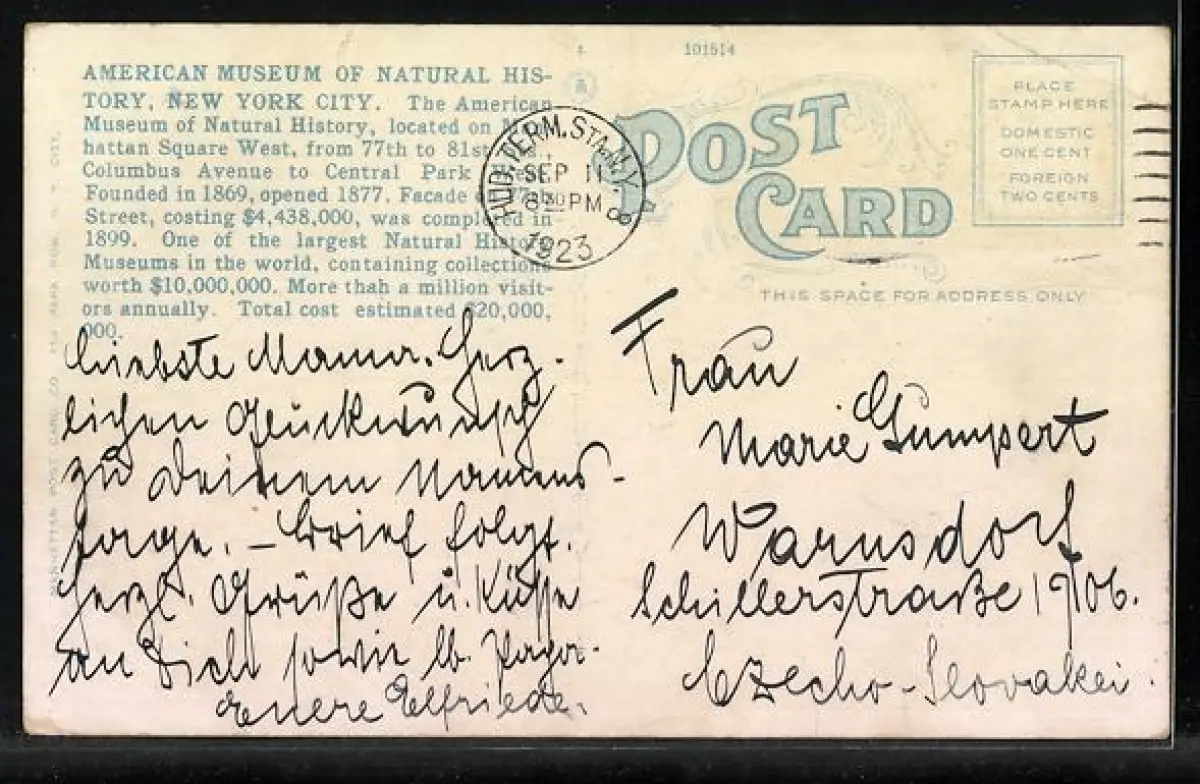 101514
AMERICAN MUSEUM OF NATURAL HIS-
TORY, NEW YORK CITY. The American
Museum of Natural History, located on Man-
hattan Square West, from 77th to 81st
Columbus Avenue to Central Park West.
Founded in 1869, opened 1877. Facade on 77th
Street, costing $4,438,000, was completed in
1899. One of the largest Natural History
Museums in the world, containing collections
worth $10,000,000. More thah a million visit-
ors annually. Total cost estimated $20,000,
000.
HUD. TERM. STA. N.Y.
SEP 11
8 30 PM
1923
POST
CARD
PLACE
STAMP HERE
DOMESTIC
ONE CENT
FOREIGN
TWO CENTS
THIS SPACE FOR ADDRESS ONLY
liebste Mama. Herz-
lichen Glückwunsch
zu Deinem Namens-
tage. – Brief folgt.
Herzl. Grüße u. Küsse
an Dich sowie lb. Papa.
Euere Elfriede.
Frau
Marie Gumpert
Warnsdorf
Schillerstraße 1906.
Czecho-Slovakei.
MANHATTAN POST CARD CO. PARK ROW, N. Y. CITY.